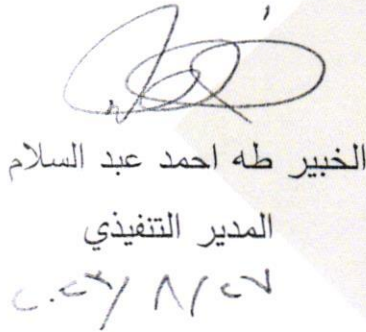 الخبير طه احمد عبد السلام
المدير التنفيذي
٢٠٢٣/ ٨/٢٧